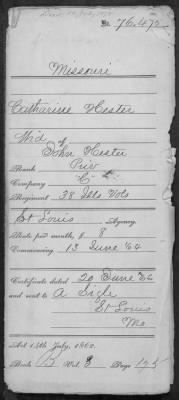 No. 76,472
Missouri
Catharine Hester
Wid of
John Hester
Rank Priv
Company C
Regiment 38 Ills Vols
St Louis Agency.
Rate per month, $ 8
Commencing 13 June '64
Certificate dated 20 June '66
and sent to A Sigle
St Louis
Mo
Act 14th July, 1862.
Book B Vol. 8 Page 195